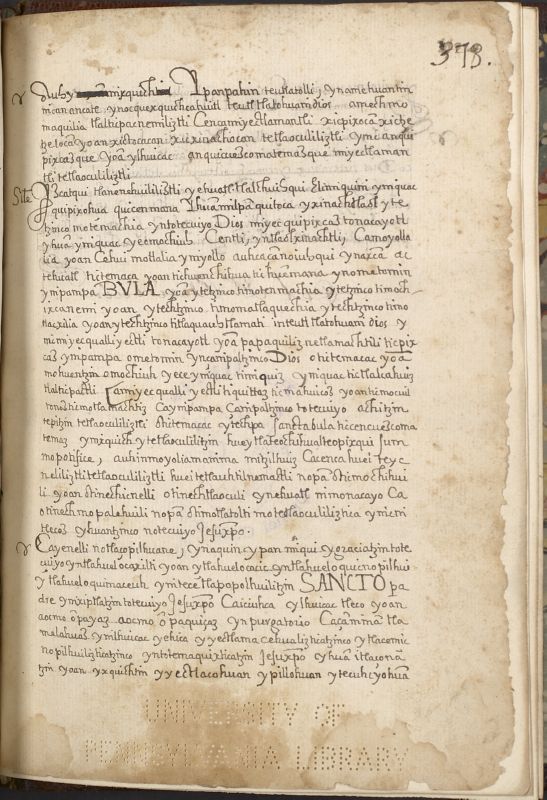 378.
Auh y mixquichtin Ipanpahin teutlatolli, yn amehuantin
nican ancate, ynocquexquicheahuitl teutl tlatohuani dios amechmo
maquilia tlalticpacnemiliztli Cenca miyectlamantli xicpixocan xicteze
tzelocan yoan xictococan xicxinachocan tetlaoculiliztli yni anqui
pixcazque yoā ylhuicac anquicuezcomatemazque miyectlaman
tli tetlaoculiliztli
Sile Yzcatqui tlanenehuililiztli yehuatl tlalchiuhqui Elimiquini yniquac
quipixohua quicenmana
tzinco motemachia yntotecuiyo Dios miyec quipixcaz tonacayotl
yhuā yniquac yeomochiuh Centli, yntlaolxinachtli, Camoyolla
lia yoan Cehui motlalia yniyollo auhcaçanoiuhqui ynaxcā
tehuatl ticitemaca yoan
ynipampa BVLA yoā ytetzinco timotenmachia ytetzinco timoch
ixcanemi yoan ytechtzinco timomatlaquechia ytechtzinco timo
tlacxilia yoan ytechtzinco titlaquauhtlamati inteutl tlatohuani dios y
nimiyec qualli yectli tonacayotl yoā papaquiliznetlamachtili ticpix
caz ynipampa ometomin yncanipaltzinco Dios oticitemacac yoā
mohuentzin omochiuh yece yniquac timiquiz yniquac ticitlalcahuiz
tlalticpactli Camiyec qualli yectli tiquittaz ticmahuizoz yoan timocuil
tonoz timotlamachtiz Caynipampa Canipaltzinco totecuiyo achitzin
tepitzin tetlaoculiliztli oticitemacac ytechpa Sancta bula ticcencuezcoma
temaz ynixquich ytetlaoculilitzin huey tlateochihualteopixqui Sum
mo potifice, auh inmoyolia manima mitzilhuiz Cacenca huei teyc
neliliztli tetlaoculiliztli huei tetlauhtilnemactli nopā otimochihui
li yoan otinechicnelli otinechtlaoculi ynehuatl nimonacayo Ca
otinechmopalehuili nopā otimotlatolti motetlaoculiliztica ynicni
tlecoz yhuantzinco notecuiyo Jesuxpo.
Cayenelli notlaçopilhuane, ynaquin ypan miqui ygraciatzin tote
cuiyo yntlahuelocaxilti yoan ytlahuelocacic yntlahueloquicnopilhui
ytlahueloquimaceuh ynitetetlapopolhuilitzin SANCTO pa
dre ynixiptlatzin totecuiyo Jesuxpō Caiciuhca ylhuicac tleco yoan
aocmo ōpayaz aocmo ōpaquiçaz ynpurgatorio Caçaninmā tla
malahuaz ynilhuicac yehica yyectlamacehualizticatzinco ytlacemic
nopilhuilizticatzinco yntotemaquixticatzin Jesuxpo yhuā itlaçonā
tzin yoan yxquichtin yyectlacohuan ypillohuan ytecuhcyohuā
UNIVERSITY OF
PENNSYLVANIA LIBRARY